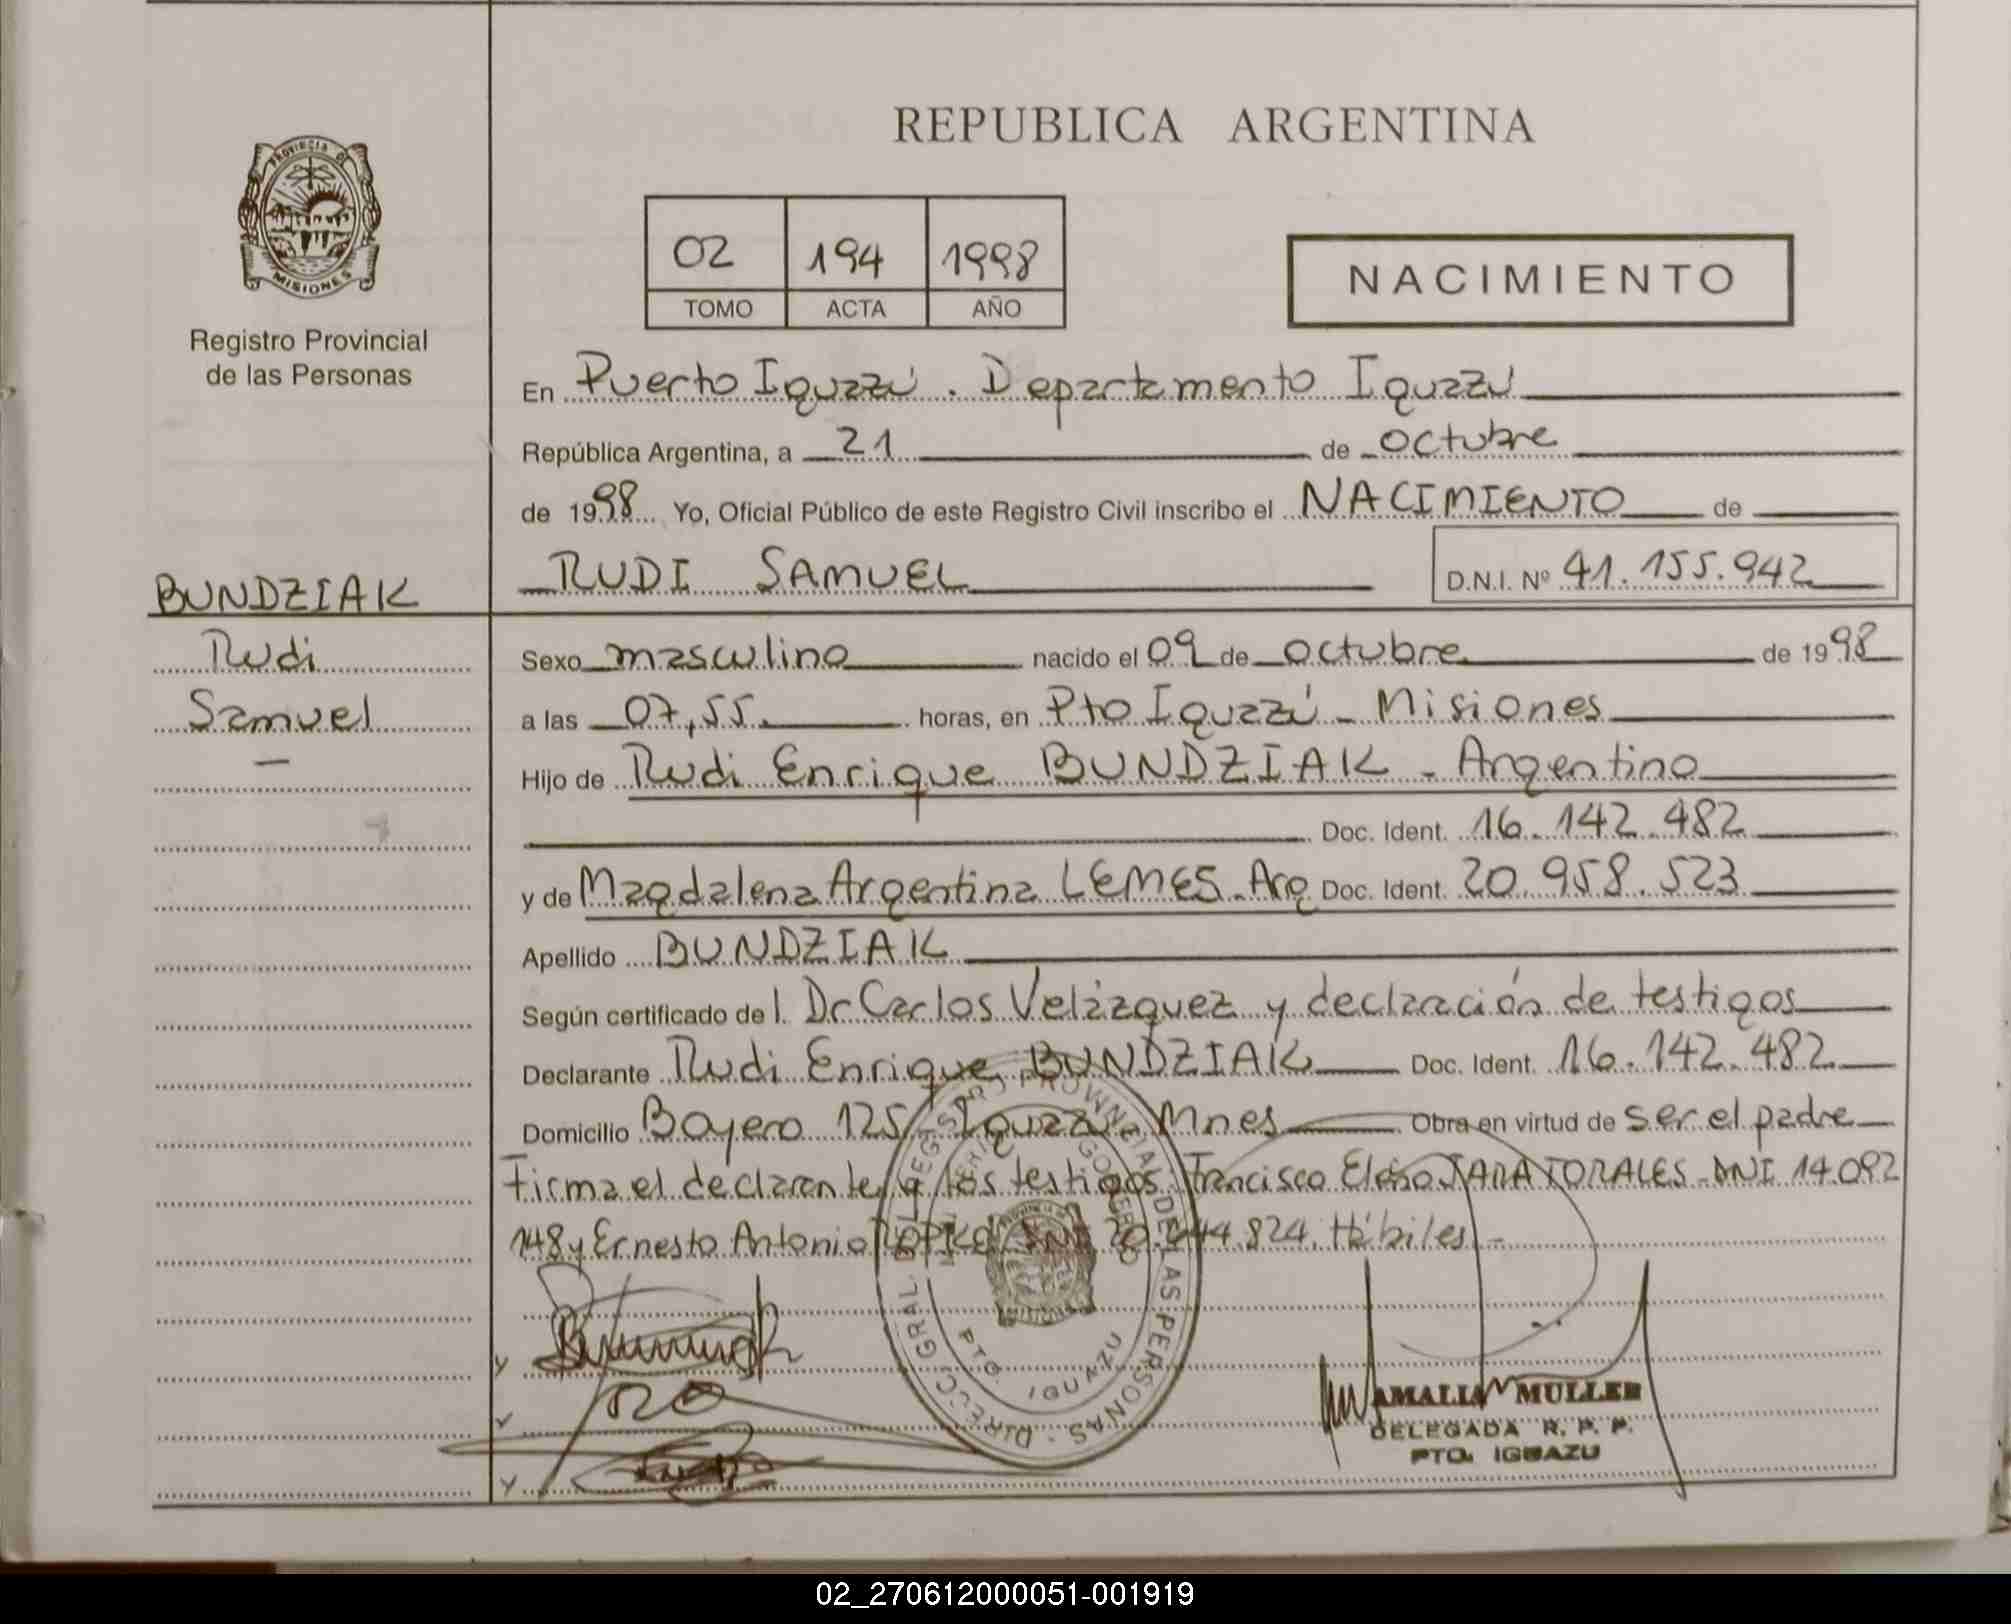 REPUBLICA ARGENTINA
PROVINCIA DE
MISIONES
Registro Provincial
de las Personas
02 194 1998
TOMO ACTA AÑO
NACIMIENTO
En Puerto Iguazú. Departamento Iguazú
República Argentina, a 21 de octubre
de 1998 Yo, Oficial Público de este Registro Civil inscribo el NACIMIENTO de
RUDI SAMUEL D.N.I. Nº 41.155.942
BUNDZIAK
Rudi
Samuel
Sexo masculino nacido el 09 de octubre de 1998
a las 07,55. horas, en Pto Iguazú - Misiones
Hijo de Rudi Enrique BUNDZIAK - Argentino
Doc. Ident. 16.142.482
y de Magdalena Argentina LEMES - Arg Doc. Ident. 20.958.523
Apellido BUNDZIAK
Según certificado de l. Dr Carlos Velázquez y declaración de testigos
Declarante Rudi Enrique BUNDZIAK Doc. Ident. 16.142.482
Domicilio Boyero 125 - Iguazú - Mnes Obra en virtud de ser el padre
Firma el declarante y los testigos: Francisco JARA TORALES - DNI 14.092
148 y Ernesto Antonio DNI 824. Hábiles -
DIRECC. GRAL. DEL REGISTRO PROVINCIAL DE LAS PERSONAS
PTO. IGUAZU
AMALIA MULLER
DELEGADA R. P. P.
PTO. IGUAZU
02_270612000051-001919